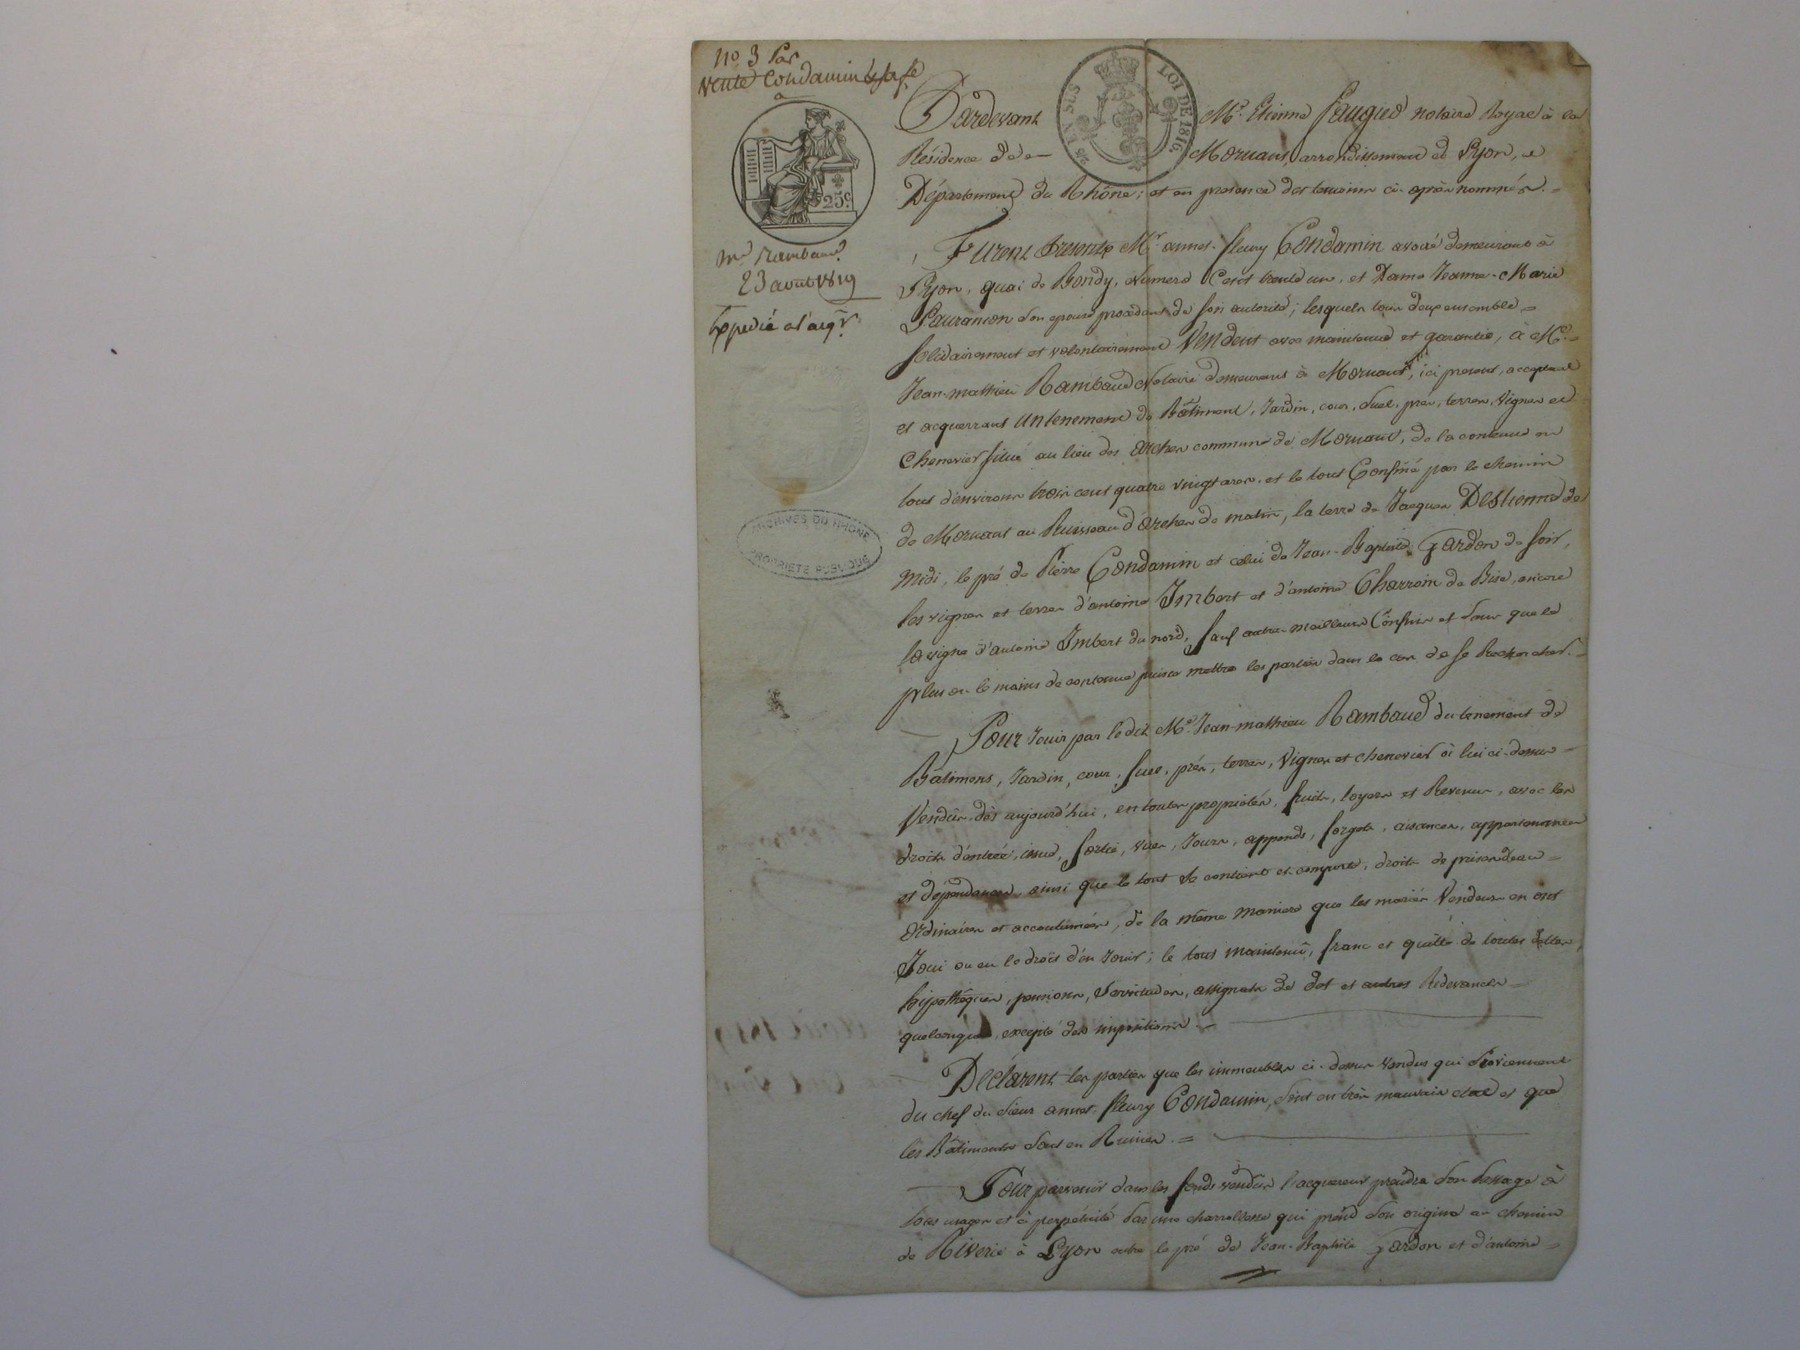 No 3 Par
Vente Condamin
à
25c.
Me Rambaud
23 août 1819
Expédié à l'acqr
ARCHIVES DU RHONE
PROPRIÉTÉ PUBLIQUE
LOI DE 1816.
Pardevant Me. Etienne Laugier notaire Royal à la
Résidence de Mornant, arrondissement de Lyon,
Département du Rhône; et en présence des temoins ci-après nommés. =
Furent Présents Mr. annet-fleury Condamin avoué demeurant à
Lyon, quai de Bondy, numero Cent trente un, et Dame Jeanne-Marie
Lauranson son epouse procédant de son autorité; lesquels tous deux ensemble =
solidairement et volontairement Vendent avec maintenue et garantie, à Me.
Jean-mathieu Rambaud Notaire demeurant à Mornant, ici present, acceptant
et acquerrant un tenement de Bâtiment, Jardin, cour, suel, prés, terres, Vignes et
Chenevier situé au lieu des Arches commune de Mornant, de la contenue en
tout d'environ trois cent quatre vingt ares, et le tout Confiné par le chemin
de Mornant au Ruisseau d'Arches de matin, la terre de Jacques Destienne de
Midi, le pré de Pierre Condamin et celui de Jean-Baptiste Gardon de soir,
les vignes et terres d'antoine Imbert et d'antoine Charroin de Bise, encore
la vigne d'antoine Imbert du nord, sauf autres meilleurs Confins et sans que le
plus ou le moins de contenue puisse mettre les parties dans le cas de se Rechercher. =
Pour Jouir par ledit Me. Jean-mathieu Rambaud du tenement de
Bâtimens, Jardin, cour, suel, prés, terres, Vignes et chenevier à lui ci-dessus =
Vendus, dès aujourd'hui, en toutes propriétés, fruits, loyers et Revenus, avec les
droits d'entrée, issue, sortie, vues, Jours, appends, forgets, aisances, appartenances
et dépendances ainsi que le tout se contient et comporte, droits de prises d'eau =
ordinaires et accoutumées, de la même maniere que les mariés Vendeurs en ont
Joui ou eu le droit d'en Jouir; le tout maintenu, franc et quitte de toutes dettes,
hipothêques, pensions, Servitudes, assignats de dot et autres Redevances =
quelconques, excepté des impositions. =
Déclarent les parties que les immeubles ci-dessus vendus qui proviennent
du chef du sieur annet-fleury Condamin, sont en très mauvais etat et que
les Bâtiments sont en Ruines. =
Pour parvenir dans les fonds vendus l'acquereur prendra son passage à
tous usages et à perpétuité par une charretiere qui prend son origine au chemin
de Riverie à Lyon entre le pré de Jean-Baptiste Gardon et d'antoine =